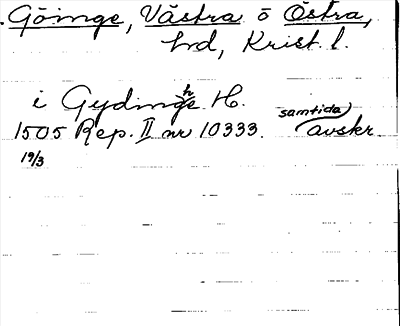 Göinge, Västra o Östra,
hrd, Krist. l.
i Gydinghs H.
1505 Rep. II nr 10333. samtida avskr.
19/3